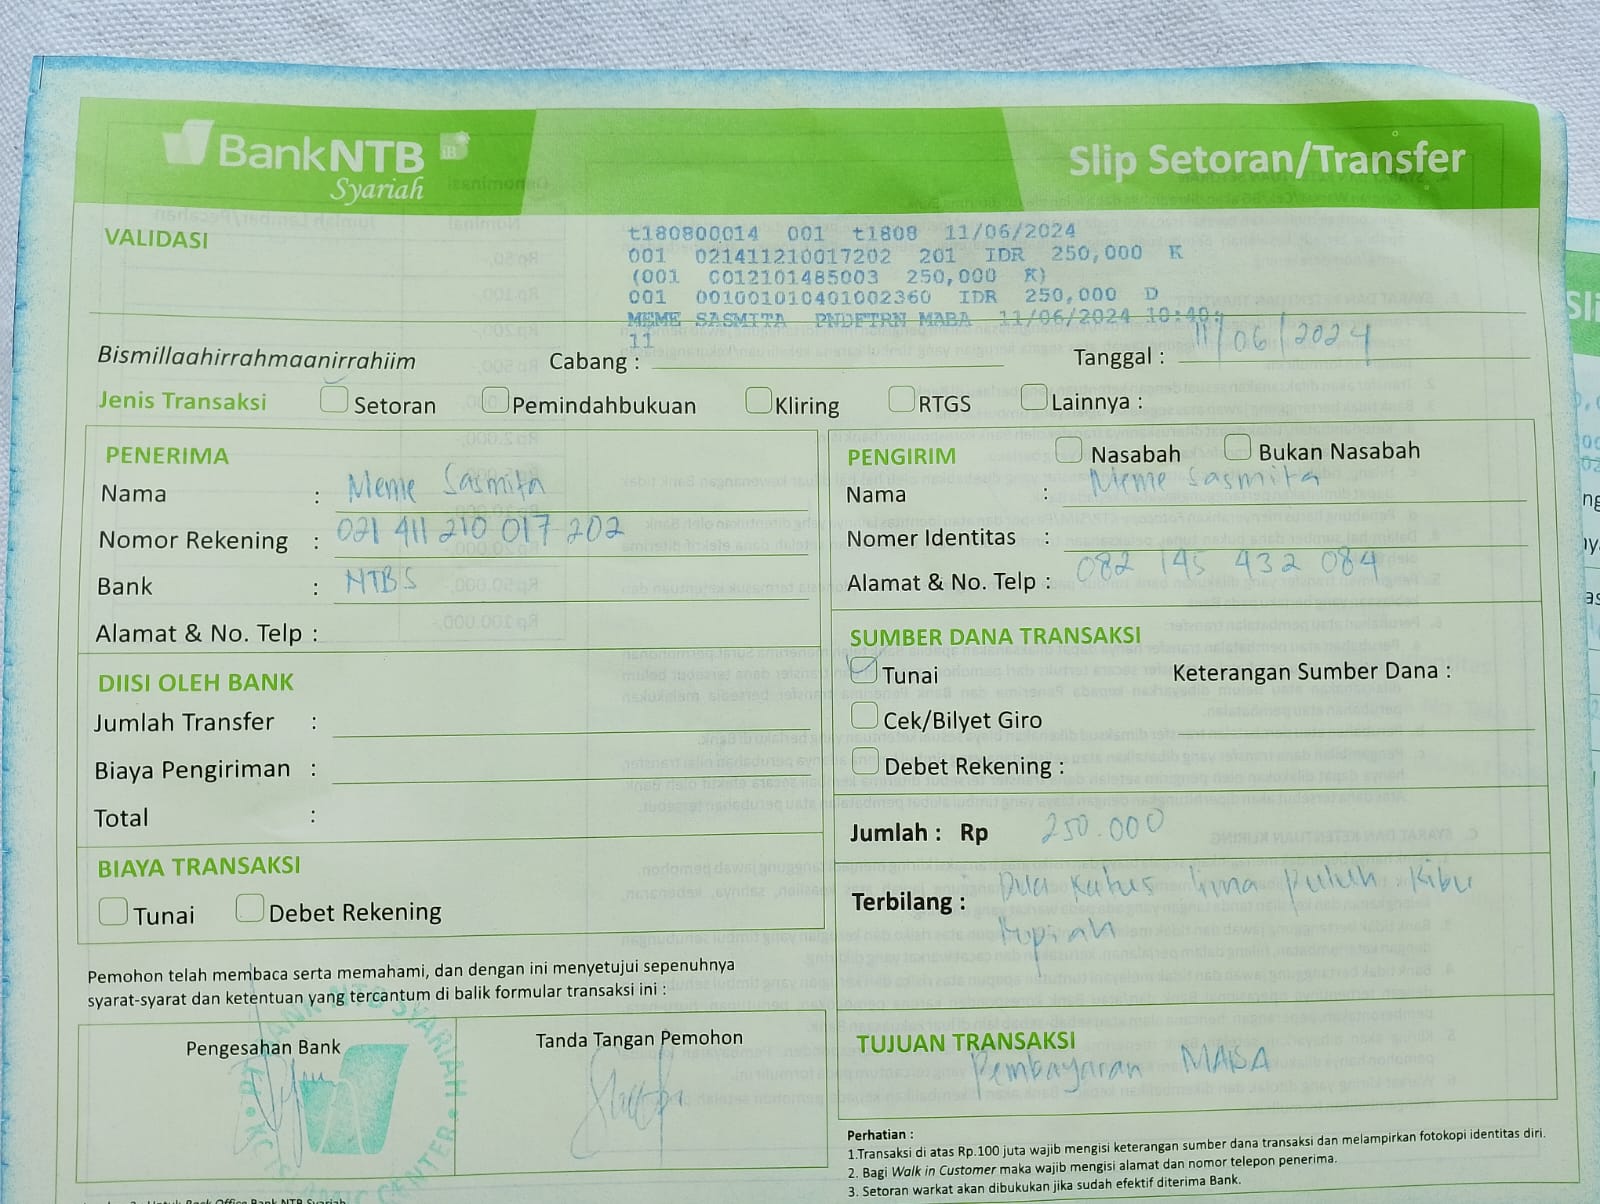 BankNTB iB
Syariah
Slip Setoran/Transfer
VALIDASI
t180800014 001 t1808 11/06/2024
001 021411210017202 201 IDR 250,000 K
(001 C012101485003 250,000 K)
001 001001010401002360 IDR 250,000 D
MEME SASMITA PNDFTRN MABA 11/06/2024 10:40:
11
Bismillaahirrahmaanirrahiim Cabang : Tanggal : 11/06/2024
Jenis Transaksi Setoran Pemindahbukuan Kliring RTGS Lainnya :
PENERIMA
Nama : Meme Sasmita
Nomor Rekening : 021 411 210 017 202
Bank : NTBS
Alamat & No. Telp :
DIISI OLEH BANK
Jumlah Transfer :
Biaya Pengiriman :
Total :
BIAYA TRANSAKSI
Tunai Debet Rekening
PENGIRIM Nasabah Bukan Nasabah
Nama : Meme Sasmita
Nomer Identitas :
Alamat & No. Telp : 082 145 432 084
SUMBER DANA TRANSAKSI
Tunai Keterangan Sumber Dana :
Cek/Bilyet Giro
Debet Rekening :
Jumlah : Rp 250.000
Terbilang : Dua Ratus lima Puluh Ribu
Rupiah
TUJUAN TRANSAKSI
Pembayaran MABA
Pemohon telah membaca serta memahami, dan dengan ini menyetujui sepenuhnya
syarat-syarat dan ketentuan yang tercantum di balik formular transaksi ini :
Pengesahan Bank
Tanda Tangan Pemohon
PT BANK NTB SYARIAH
CENTER
Perhatian :
1.Transaksi di atas Rp.100 juta wajib mengisi keterangan sumber dana transaksi dan melampirkan fotokopi identitas diri.
2. Bagi Walk in Customer maka wajib mengisi alamat dan nomor telepon penerima.
3. Setoran warkat akan dibukukan jika sudah efektif diterima Bank.